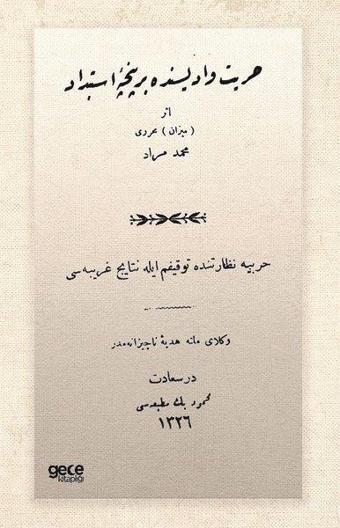 حریت وادیسنده بر پنچهٔ استبداد
اثر
( میزان ) محرری
محمد مراد
حربیه نظارتنده توقیفم ایله نتایج غریبه‌سی
وکلای ملته هدیهٔ ناچیزانه‌مدر
درسعادت
محمود بك مطبعه‌سی
١٣٢٦
gece
kitaplığı